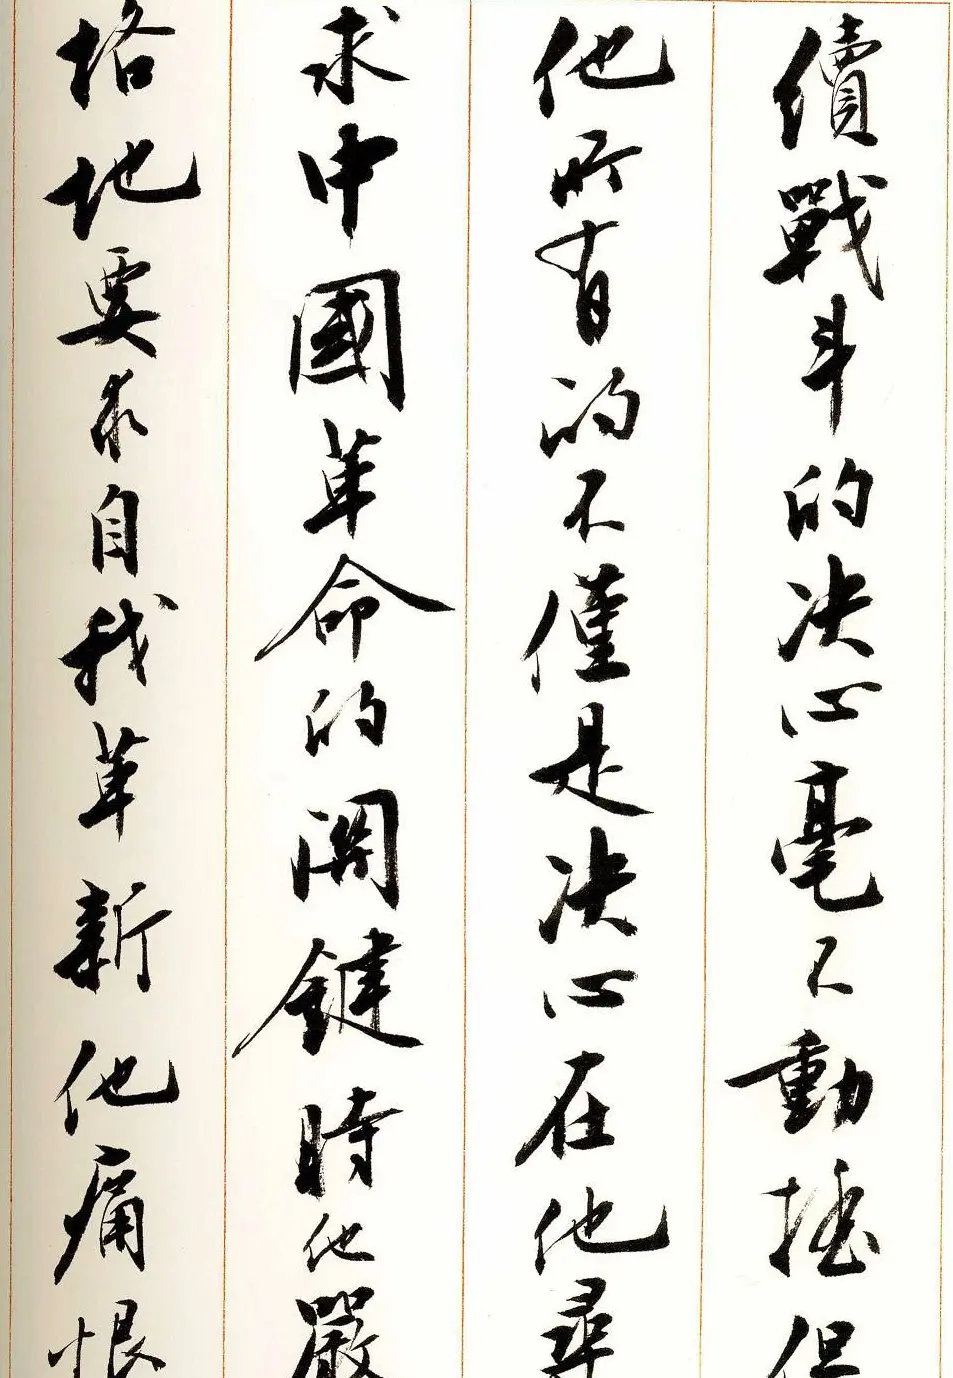 續戰斗的决心毫不動摇但
他所有的不僅是决心在他尋
求中國革命的関鍵時他嚴
格地要求自我革新他痛恨